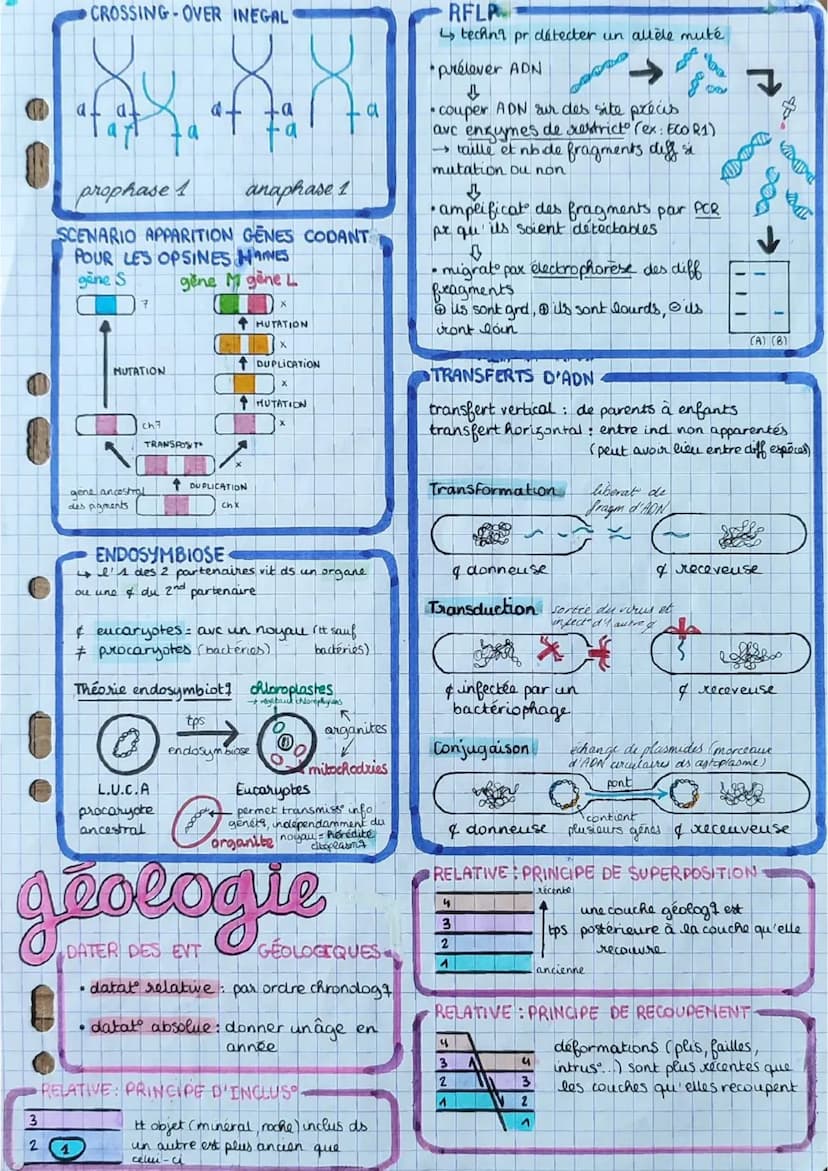 CROSSING-OVER INEGAL
a a a a
a a a a
prophase 1 anaphase 1
SCENARIO APPARITION GÈNES CODANT
POUR LES OPSINES HAINES
gène S gène M gène L
7 x
MUTATION
x
DUPLICATION
MUTATION
x
MUTATION
ch7 x
TRANSPOSIT°
x
DUPLICATION
gène ancestral
des pigments
chx
ENDOSYMBIOSE
↳ l'1 des 2 partenaires vit ds un organe
ou une ¢ du 2nd partenaire
¢ eucaryotes = avc un noyau (tt sauf
≠ procaryotes (bactéries) bactéries)
Théorie endosymbiotq chloroplastes
→ végétaux chlorophylliens
tps
endosymbiose
organites
mitochodries
L.U.C.A Eucaryotes
procaryote
ancestral
permet transmiss° info
génétq, indépendamment du
noyau = hérédité
cytoplasmq
organite
RFLP
↳ technq pr détecter un allèle muté
• prélever ADN
• couper ADN sur des site précis
avc enzymes de restrict° (ex: ECOR1)
→ taille et nb de fragments diff si
mutation ou non
• amplificat° des fragments par PCR
pr qu'ils soient détectables
• migrat° par électrophorèse des diff
fragments
⊕ ils sont grd, ⊕ ils sont lourds, ⊖ ils
iront loin
(A) (B)
TRANSFERTS D'ADN
transfert vertical : de parents à enfants
transfert horizontal : entre ind non apparentés
(peut avoir lieu entre diff espèces)
Transformation
libérat° de
fragm d'ADN
¢ donneuse ¢ receveuse
Transduction
sortée du virus et
infect° d'1 autre ¢
¢ infectée par un
bactériophage
¢ receveuse
Conjugaison
échange de plasmides (morceaux
d'ADN circulaires ds cytoplasme)
pont
contient
plusieurs gènes
¢ donneuse ¢ receuveuse
géologie
DATER DES EVT GÉOLOGIQUES
• datat° relative : par ordre chronologq
• datat° absolue : donner un âge en
année
RELATIVE : PRINCIPE D'INCLUS°
3
2 1
tt objet (minéral, roche) inclus ds
un autre est plus ancien que
celui-ci
RELATIVE : PRINCIPE DE SUPERPOSITION
4
3
2
1
récente
tps
ancienne
une couche géologq est
postérieure à la couche qu'elle
recouvre
RELATIVE : PRINCIPE DE RECOUPEMENT
4
3 4
2 3
1 2
1
déformations (plis, failles,
intrus°...) sont plus récentes que
les couches qu'elles recoupent